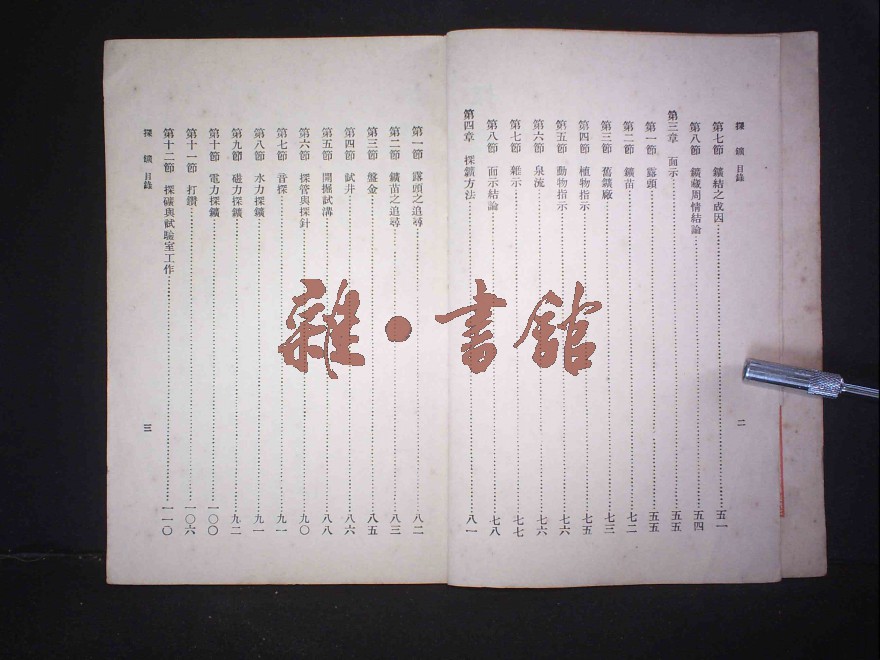 探鑛 目錄
二
第七節 鑛結之成因 五一
第八節 鑛藏周情結論 五四
第三章 面示 五五
第一節 露頭 五五
第二節 鑛苗 七二
第三節 舊鑛廠 七三
第四節 植物指示 七五
第五節 動物指示 七六
第六節 泉流 七六
第七節 雜示 七七
第八節 面示結論 七八
第四章 探鑛方法 八一
第一節 露頭之追尋 八二
第二節 鑛苗之追尋 八三
第三節 盤金 八五
第四節 試井 八六
第五節 開掘試溝 八八
第六節 探管與探針 九〇
第七節 音探 九一
第八節 水力探鑛 九一
第九節 磁力探鑛 九二
第十節 電力探鑛 一〇〇
第十一節 打鑽 一〇六
第十二節 探礦與試驗室工作 一一〇
探鑛 目錄
三
雜·書館